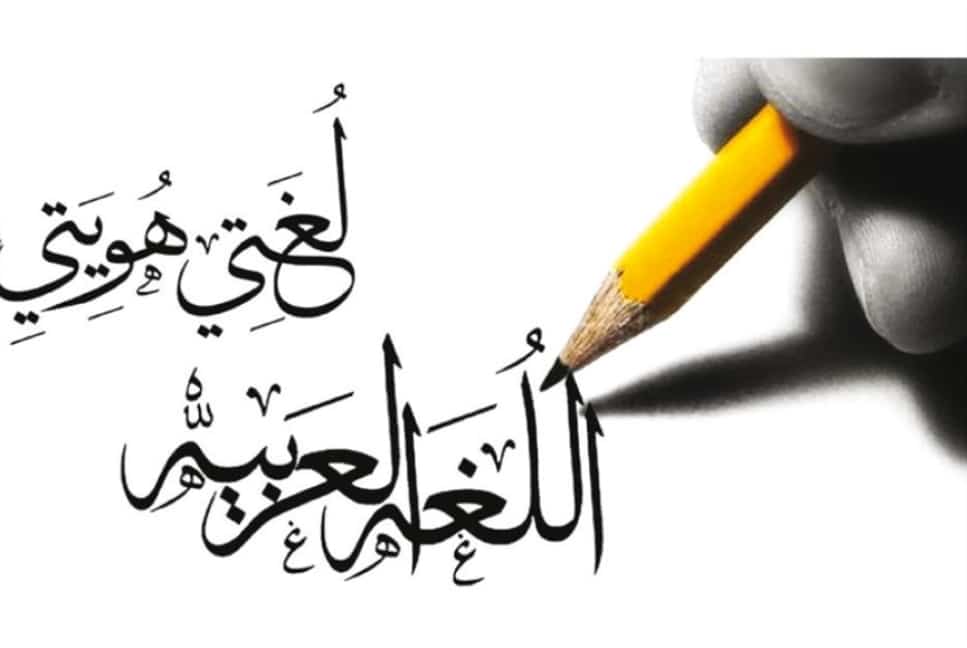 لُغَتِي هُوِيَتِي
اللُغَه العَرَبيه